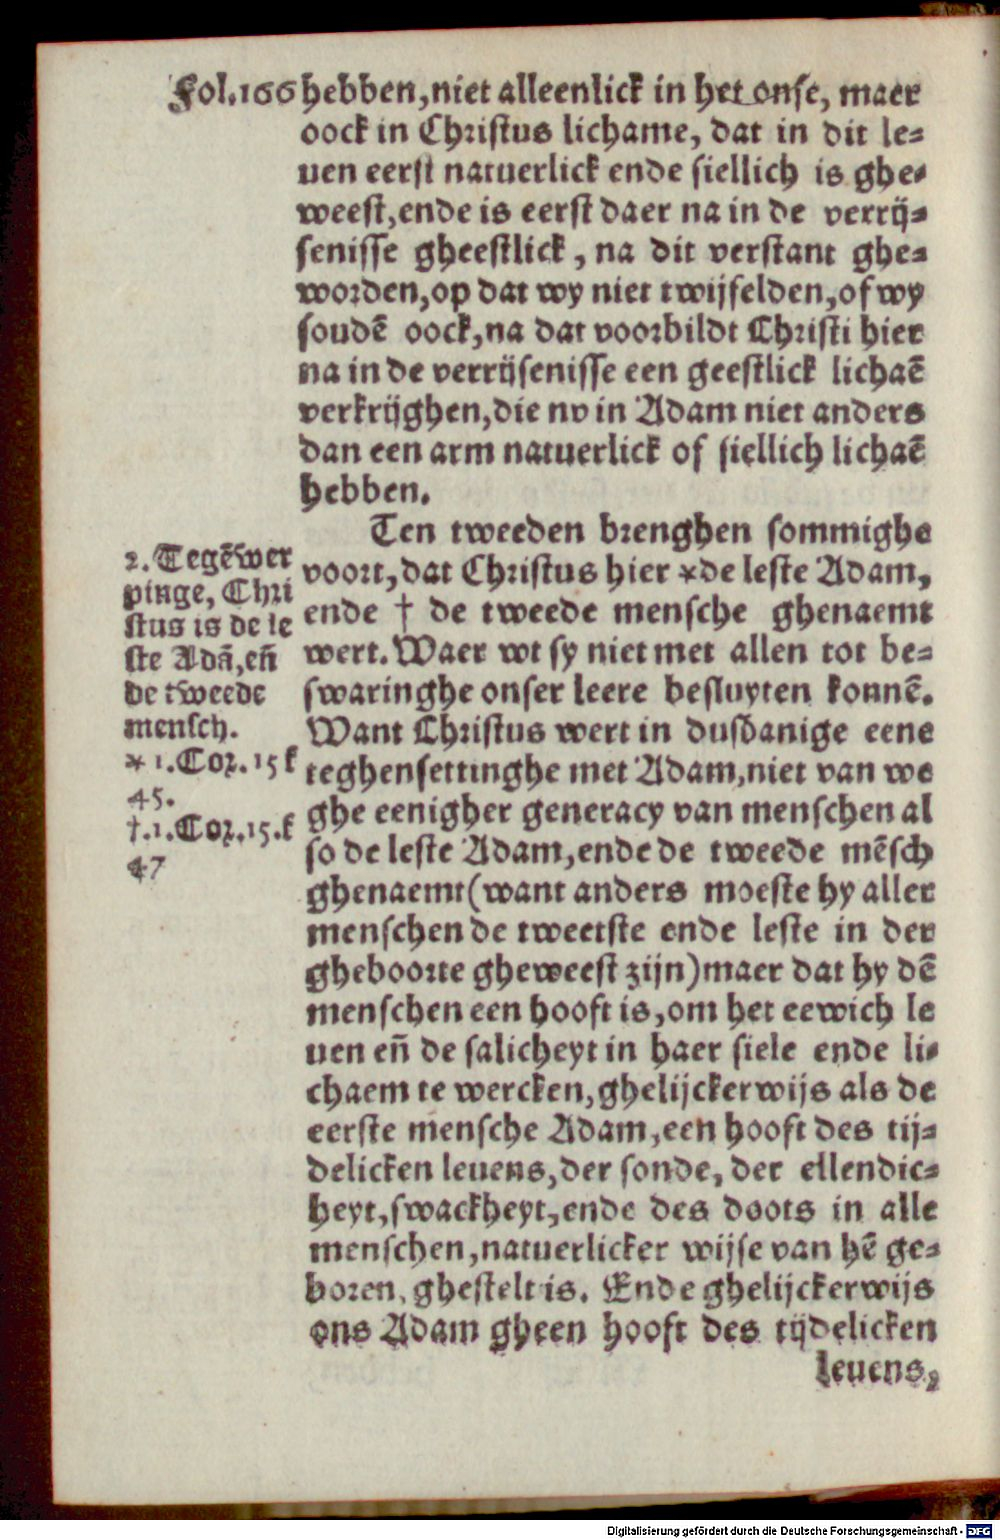 Fol.166 hebben, niet alleenlick in het onse, maer
oock in Christus lichame, dat in dit le=
uen eerst natuerlick ende siellich is ghe=
weest, ende is eerst daer na in de verrij=
senisse gheestlick, na dit verstant ghe=
worden, op dat wy niet twijfelden, of wy
soudē oock, na dat voorbildt Christi hier
na in de verrijsenisse een geestlick lichaē
verkrijghen, die nv in Adam niet anders
dan een arm natuerlick of siellich lichaē
hebben.
Ten tweeden brenghen sommighe
voort, dat Christus hier *de leste Adam,
ende † de tweede mensche ghenaemt
wert. Waer wt sy niet met allen tot be=
swaringhe onser leere besluyten konnē.
Want Christus wert in dusdanige eene
teghensettinghe met Adam, niet van we
ghe eenigher generacy van menschen al
so de leste Adam, ende de tweede mēsch
ghenaemt (want anders moeste hy aller
menschen de tweetste ende leste in der
gheboorte gheweest zijn) maer dat hy dē
menschen een hooft is, om het eewich le
uen eñ de salicheyt in haer siele ende li=
chaem te wercken, ghelijckerwijs als de
eerste mensche Adam, een hooft des tij=
delicken leuens, der sonde, der ellendic=
heyt, swackheyt, ende des doots in alle
menschen, natuerlicker wijse van hē ge=
boren, ghestelt is. Ende ghelijckerwijs
ons Adam gheen hooft des tijdelicken
leuens,
2. Tegēwer
pinge, Chri
stus is de le
ste Adā, eñ
de tweede
mensch.
* 1. Cor. 15 k
45.
†.1. Cor. 15. k
47
Digitalisierung gefördert durch die Deutsche Forschungsgemeinschaft - DFG